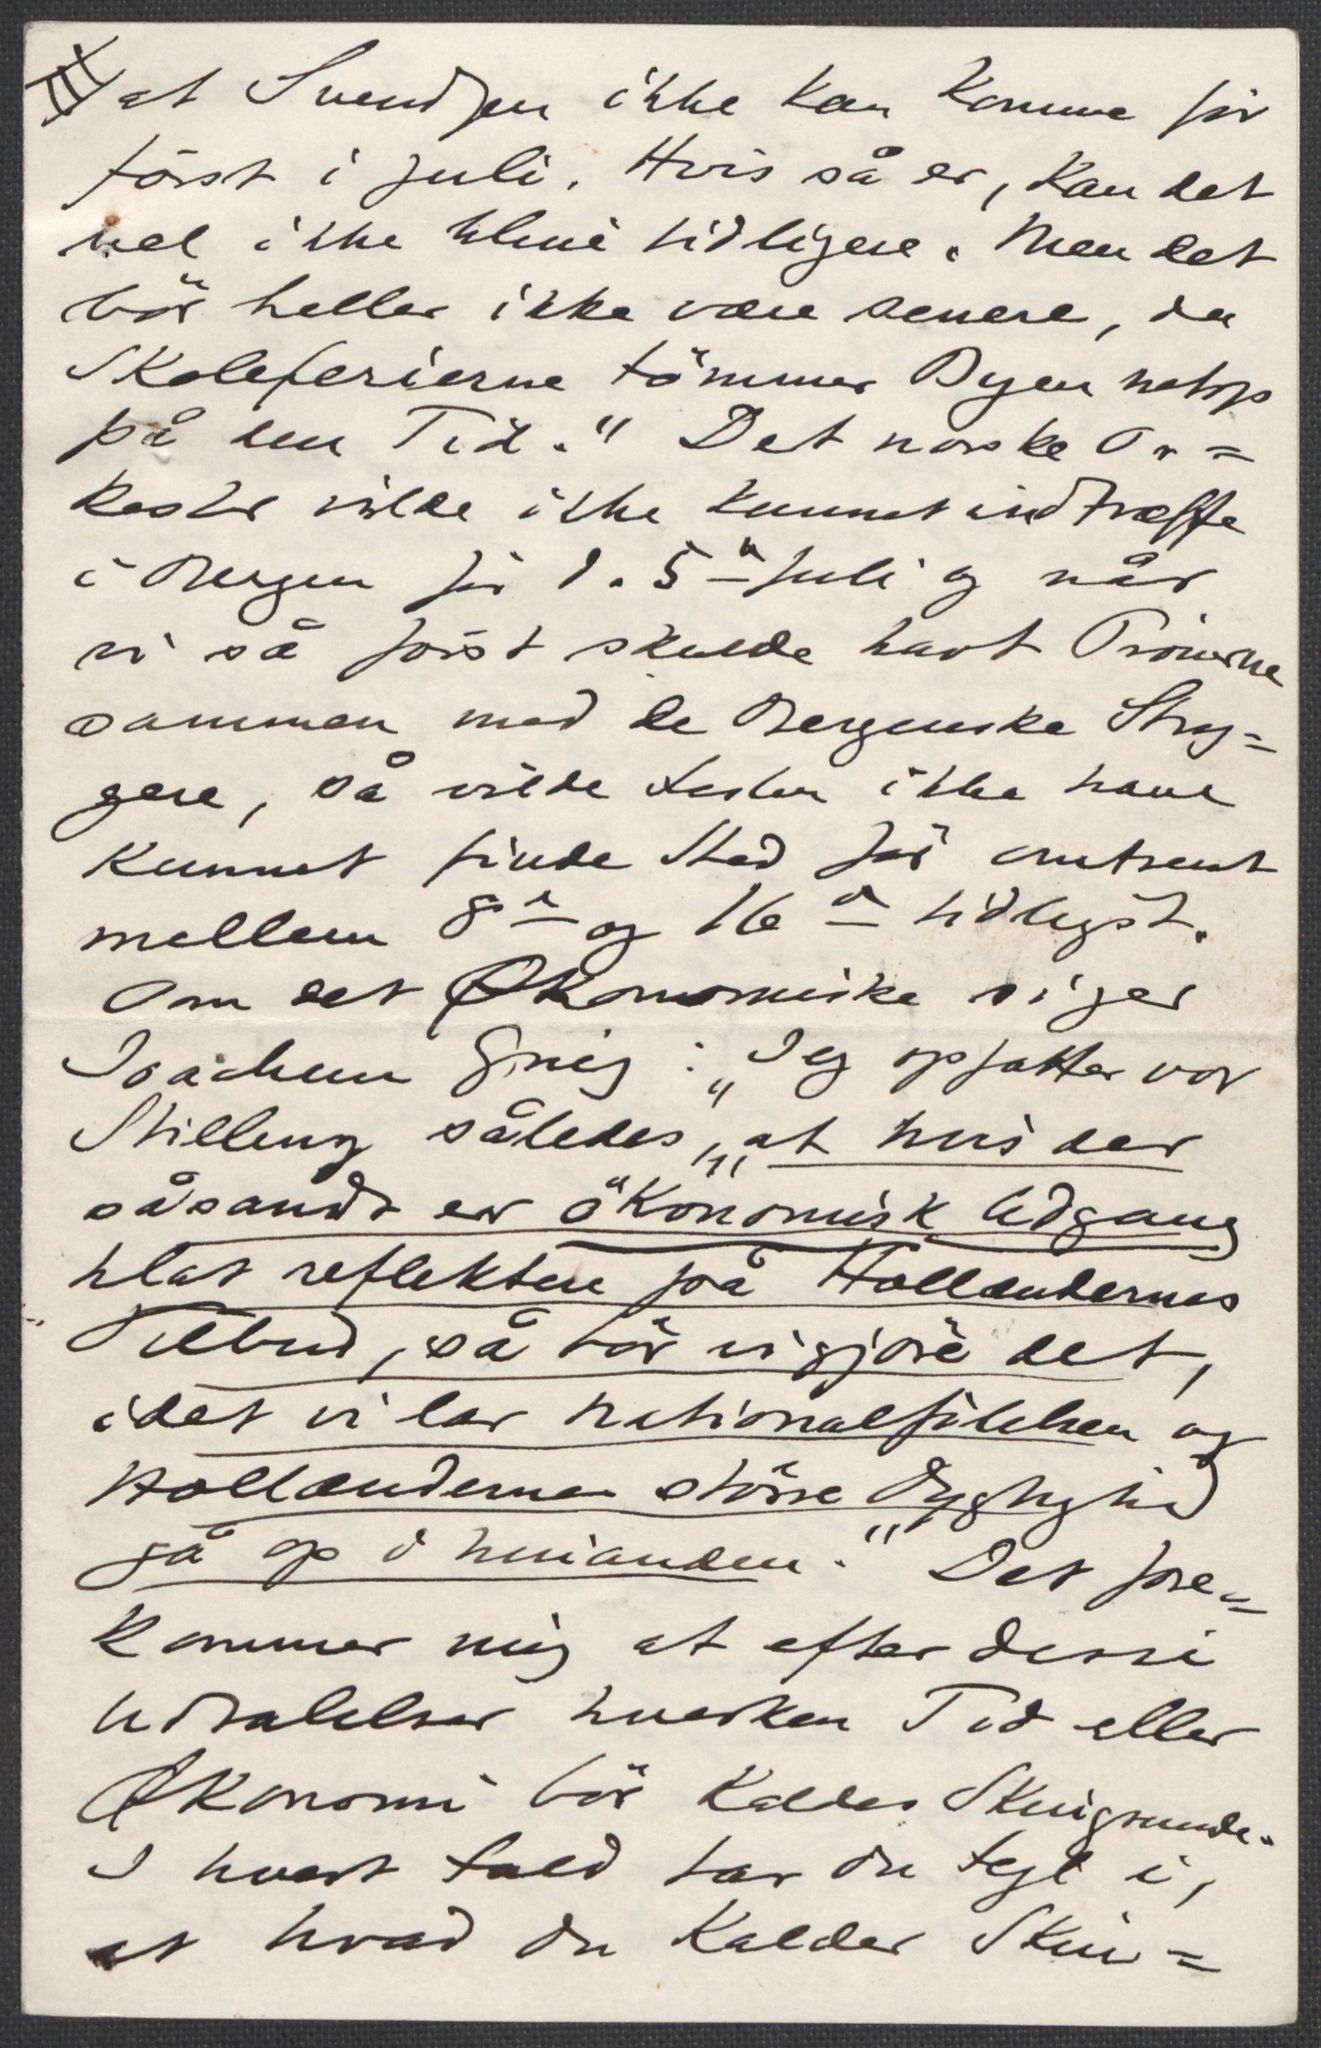 III
at Svendsen ikke kan komme för
först i Juli. Hvis så er, kan det
vel ikke blive tidligere. Men det
bör heller ikke være senere, da
Skoleferierne tömmer Byen netop
på den Tid." Det norske Or=
kester vilde ikke kunnet indtræffe
i Bergen för d. 5te Juli og når
vi så först skulde havt Pröverne
sammen med de Bergenske Stry=
gere, så vilde Festen ikke have
kunnet finde Sted för omtrent
mellem 8de og 16de tidligst.
Om det Økonomiske siger
Joachim Grieg: "Jeg opfatter vor
Stilling således, "at hvis der
såsandt er ökonomisk Adgang
til at reflektere på Hollændernes
Tilbud, så bör vi gjöre det,
idet vi lar Nationalfölelsen og
Hollændernes större Dygtighed
gå op i hinanden." Det fore=
kommer mig at efter disse
Udtalelser hverken Tid eller
Økonomi bör kaldes Skingrunde.
I hvert Fald tar du fejl i,
at hvad du kalder Skin=